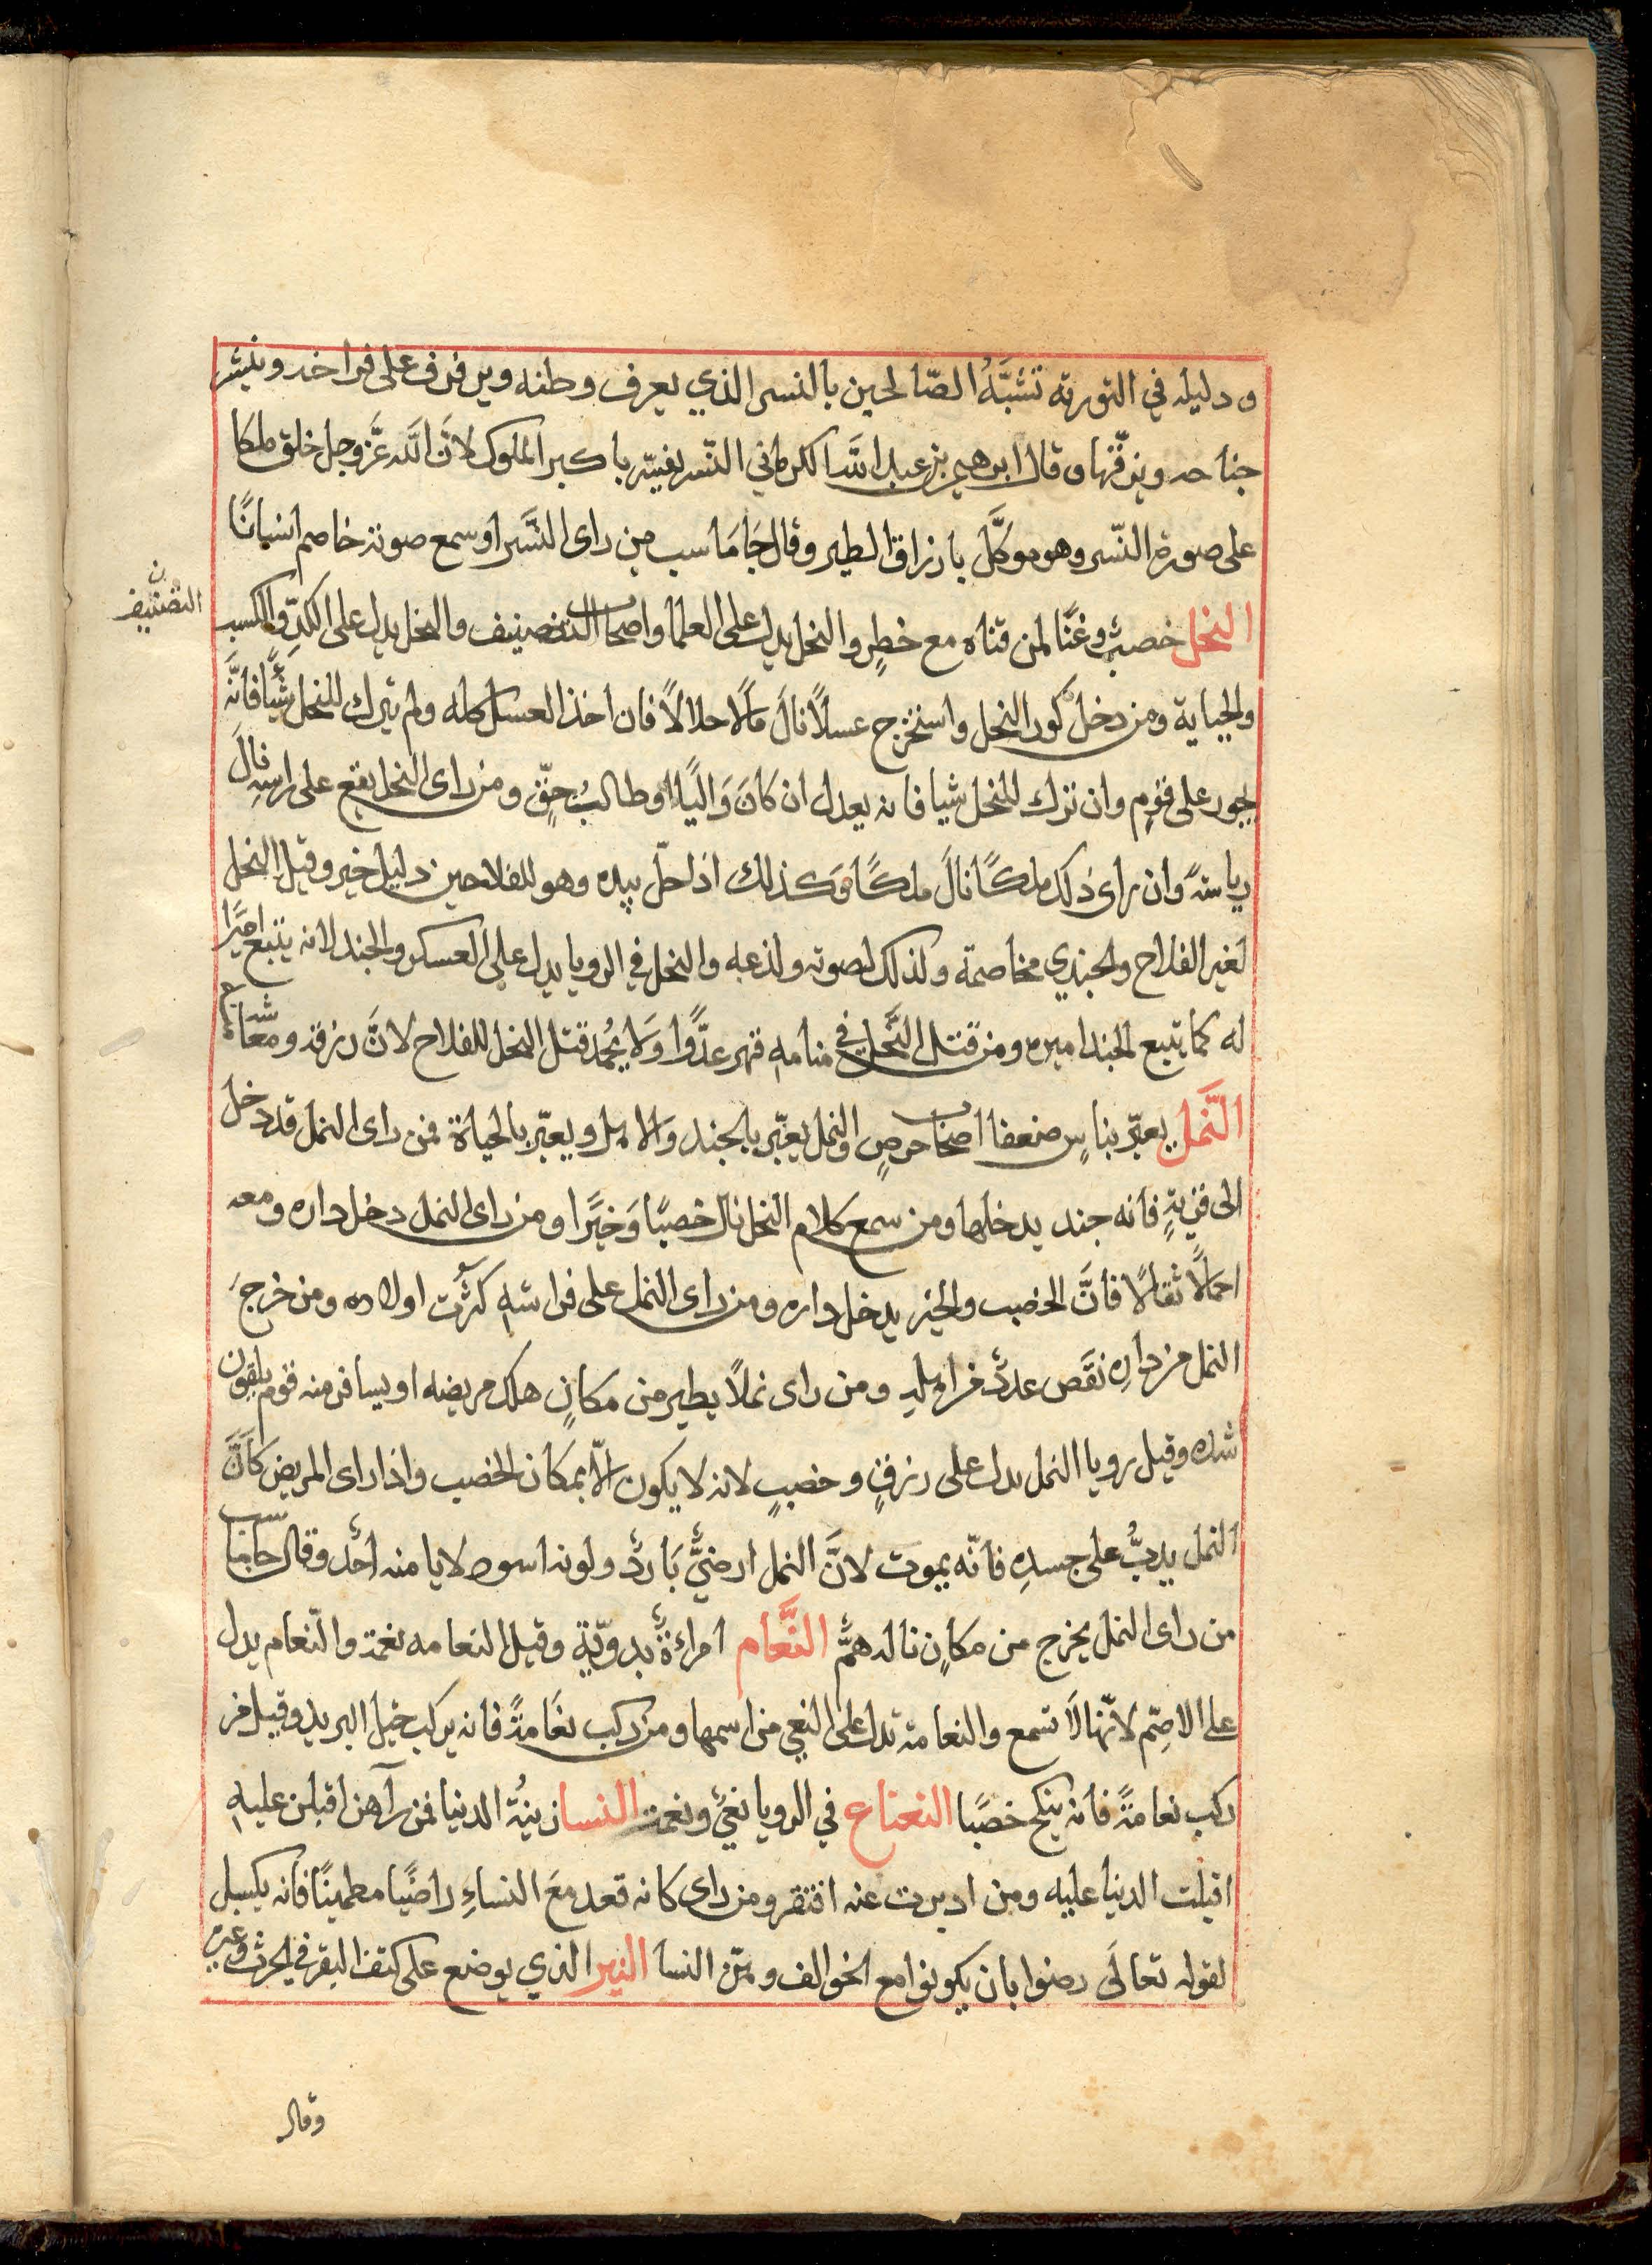 ودليله في التورته تشبَّهُ الصّالحين بالنسر الذي يعرف وطنه ويرفرف على فراخه وينشر
جناحه ويزقّها وقال ابرهيم بن عبد الله الكرماني النّسر يفسّر باكبر الملوك لانّ الله عزَّ وجل خلق ملكا
على صورة النّسر وهو موكَّل بارزاق الطير وقال جَامَاسب من راى النَّسر او سمع صوته خاصم انسانًا
النحل خصبٌ وغنًا لمن قناه مع خطرٍ والنحل يدل على العلما واصحاب التصنيف والنحل يدل على الكدّ والكسب
التصنيف
والجباية ومن دخل كور النحل واستخرج عسلاً نالَ مَالًا حلالًا فان اخذ العسل كله ولم يترك للنحل شيًا فانَّه
يجور على قومٍ وان ترك للنحل شيا فانه يعدل ان كَانَ وَاليًا او طالبُ حقّ ومن راى النحل يقع على راسِه نالَ
رياسةً وان راى ذلك ملكًا نالَ ملكًا وَكذلك اذا حلّ بيده وهو للفلاحين دليل خير وقيل النحل
لغير الفلاح والجندي مخاصمة وذلك لصوته ولذعه والنحل في الرويا يدل على العسكر والجند لانه يتبع اميرًا
له كما يتبع الجند اميره ومن قتل النَّحل في منامه قهر عدُّوا وَلا يُحمد قتل النحل للفلاح لانَّ رزقه ومعاشه
النَّمل يعبّر بناسٍ ضعفا اصحاب حرصٍ والنمل يعبّر بالجند والاهل ويعبّر بالحياة فمن راى النمل قد دخل
الى قريةٍ فانه جند يدخلها ومن سمع كلام النحل نال خصبًا وَخيرًا ومن راى النمل دخل داره ومعه
احمالًا ثقالًا فانَّ الخصب والخير يدخل داره ومن راى النمل على فراشهِ كثُرت اولاده ومن خرجَ
النمل من دارِه نقَص عددٌ من اهلهِ ومن راى نملًا يطير من مكانٍ هلك مريضه او يسافر منه قوم يلقون
شده وقيل رويا النمل يدل على رزقٍ وخصبٍ لانه لا يكون الّا بمكان الخصب واذا راى المريض كانَّ
النمل يدبُّ على جسدِه فانّه يموت لانَّ النمل ارضيٌّ بَاردٌ ولونه اسود لا يامنه احدٌ وقال جاماسب
من راى النمل يخرج من مكانٍ ناله همٌّ النَّعام امراءةٌ بدويّة وقيل النعامه نعمة والنّعام يدل
على الاصمّ لانّها لَا تسمع والنعامة تدل على النعي من اسمها ومن ركب نعَامةً فانه يركب خيل البريد وقيل من
ركب نعامةً فانه ينكح خصًيا النعناع في الرويا نعيٌ ونعمة النسا زينةُ الدنيا فمن رآهن اقبلن عليهِ
اقبلت الدنيا عليه ومن ادبرت عنه افتقر ومن راى كانه قعد معَ النساءِ راضيًا مطمينًا فانه يكسل
لقوله تعالَى رضوا بان يكونوا مع الخوالف وهنّ النسا النير الذي يوضع على كتف البقر في الحرث وغيره
وقال